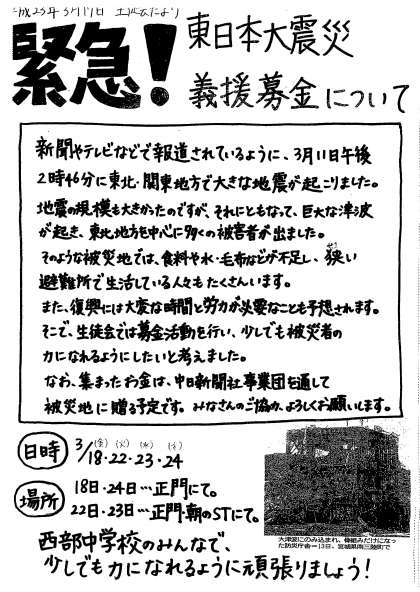 平成23年3月17日 生徒会だより
緊急!
東日本大震災
義援募金について
新聞やテレビなどで報道されているように、3月11日午後
2時46分に東北・関東地方で大きな地震が起こりました。
地震の規模も大きかったのですが、それにともなって、巨大な津波
が起き、東北地方を中心に多くの被害者が出ました。
そのような被災地では、食料や水・毛布などが不足し、狭い
避難所で生活している人々もたくさんいます。
また、復興には大変な時間と労力が必要なことも予想されます。
そこで、生徒会では募金活動を行い、少しでも被災者の
力になれるようにしたいと考えました。
なお、集まったお金は、中日新聞社事業団を通して
被災地に贈る予定です。みなさんのご協力、よろしくお願いします。
日時 3/18・22・23・24
(金)(火)(水)
場所 18日・24日…正門にて。
22日・23日…正門・朝のSTにて。
大津波にのみ込まれ、骨組みだけになっ
た防災庁舎=13日、宮城県南三陸町で
西部中学校のみんなで、
少しでも力になれるように頑張りましょう!